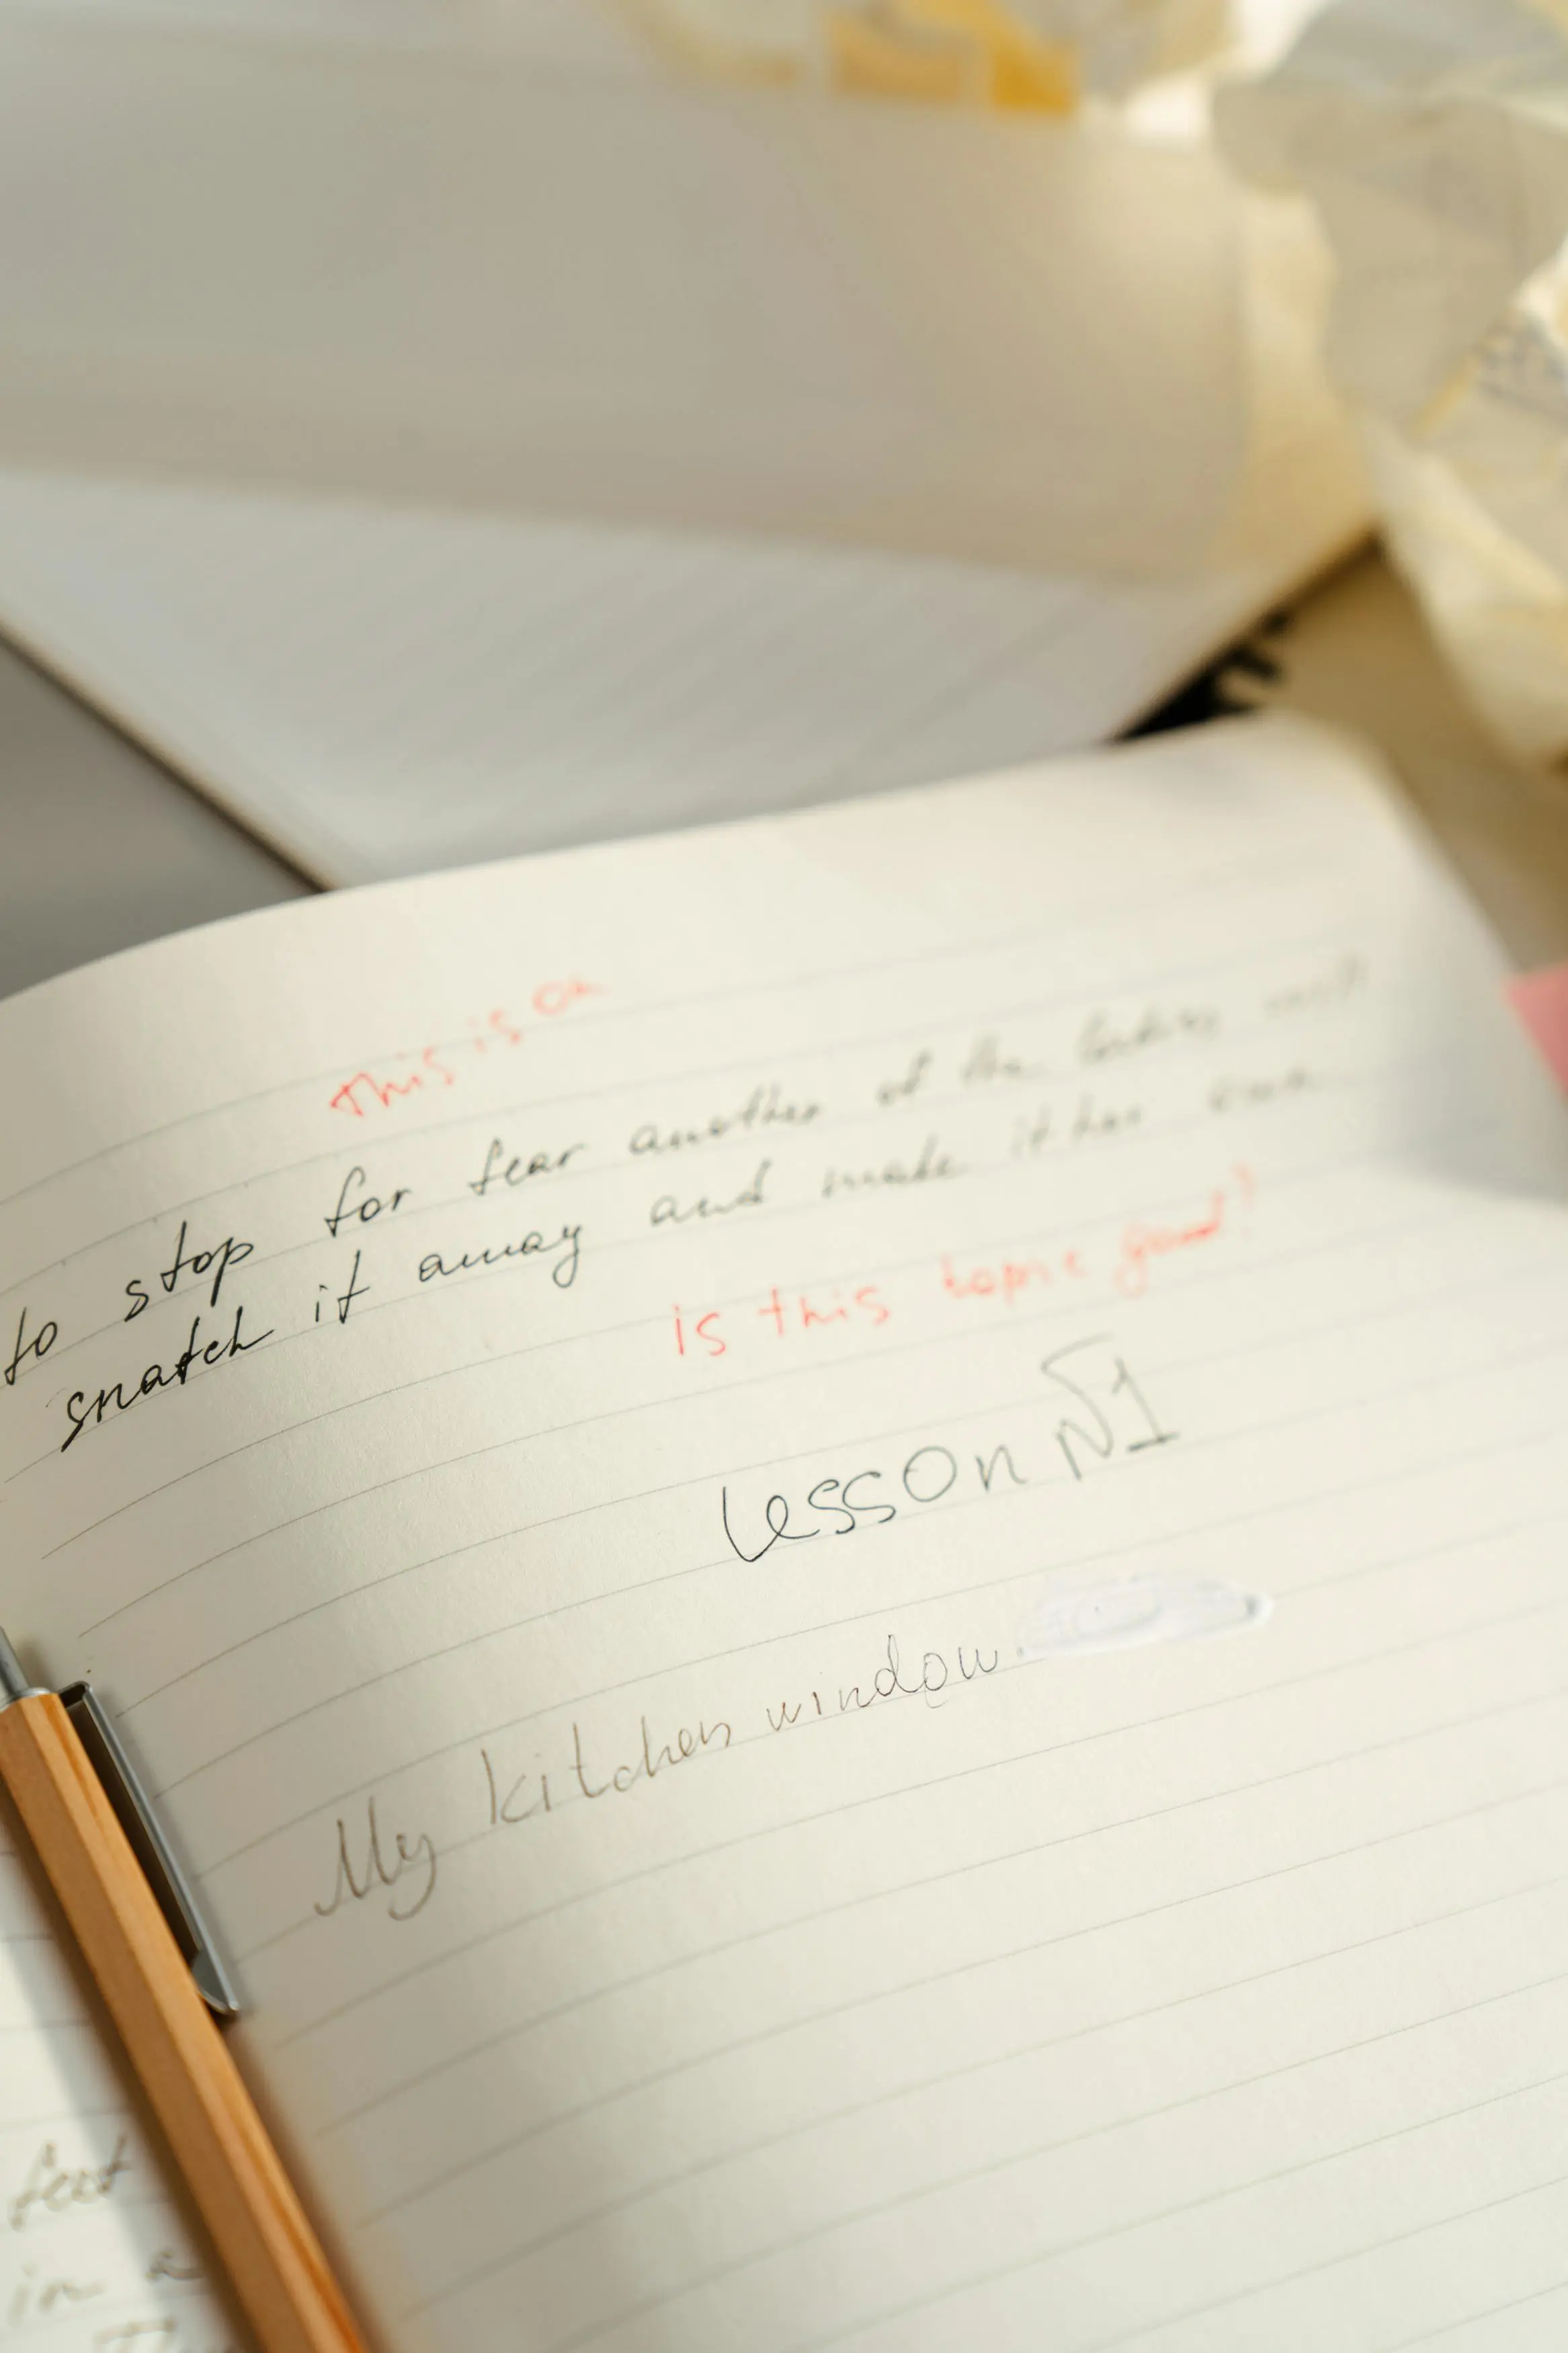 This is on
to stop for fear another of the ladies will
snatch it away and make it her own.
is this topic good?
Lesson N1
My kitchen window.
feet
in a